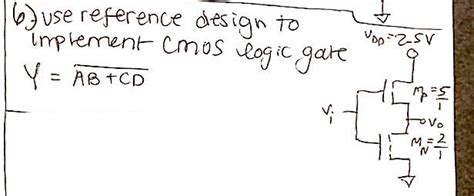 6) use reference design to
implement cmos logic gate
Y = \overline{AB+CD}
V_DD = 2.5V
M_P = 5/1
V_i
V_o
M_N = 2/1